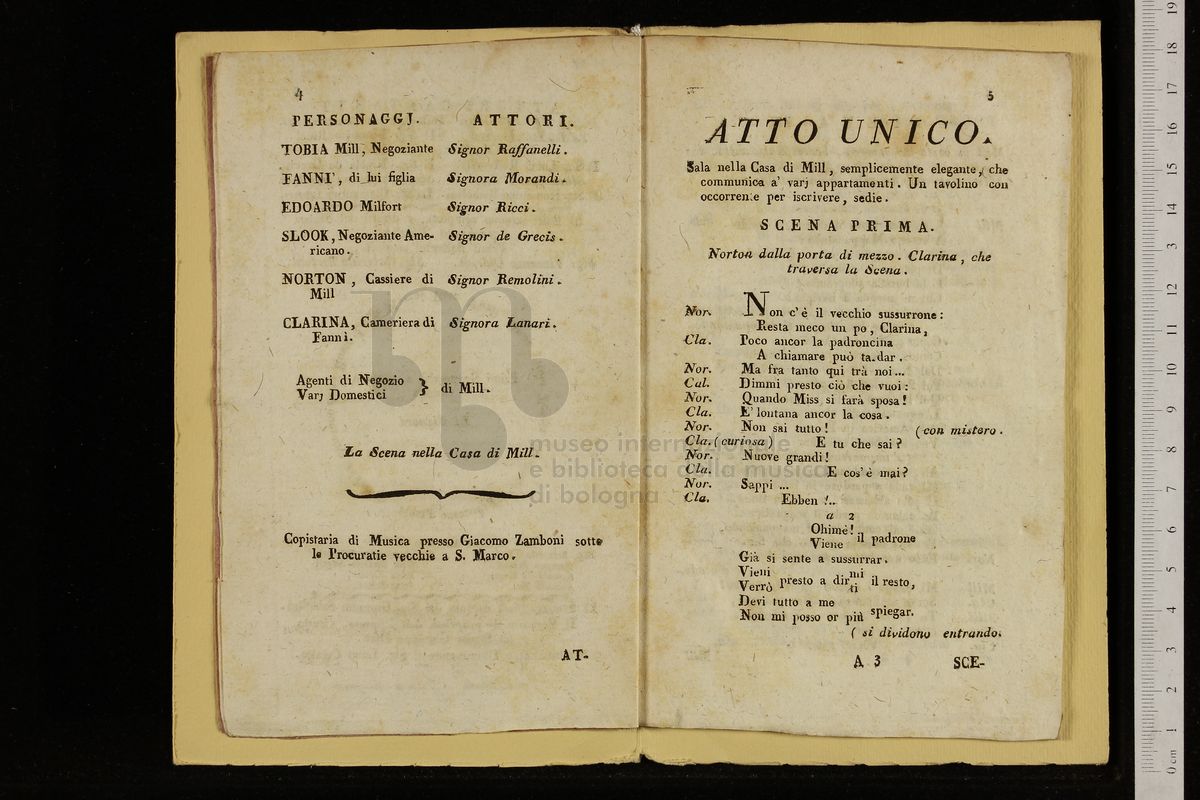 4
PERSONAGGJ. ATTORI.
TOBIA Mill, Negoziante Signor Raffanelli.
FANNI', di lui figlia Signora Morandi.
EDOARDO Milfort Signor Ricci.
SLOOK, Negoziante Ame- Signor de Grecis.
ricano.
NORTON, Cassiere di Signor Remolini.
Mill
CLARINA, Cameriera di Signora Lanari.
Fannì.
Agenti di Negozio } di Mill.
Varj Domestici
La Scena nella Casa di Mill.
Copistaria di Musica presso Giacomo Zamboni sotto
le Procuratie vecchie a S. Marco.
AT-
5
ATTO UNICO.
Sala nella Casa di Mill, semplicemente elegante, che
communica a' varj appartamenti. Un tavolino con
occorrente per iscrivere, sedie.
SCENA PRIMA.
Norton dalla porta di mezzo. Clarina, che
traversa la Scena.
Nor. Non c'è il vecchio sussurrone:
Resta meco un po, Clarina,
Cla. Poco ancor la padroncina
A chiamare può ta.dar.
Nor. Ma fra tanto qui trà noi...
Cal. Dimmi presto ciò che vuoi:
Nor. Quando Miss si farà sposa!
Cla. E' lontana ancor la cosa.
Nor. Non sai tutto! (con mistero.
Cla. (curiosa) E tu che sai?
Nor. Nuove grandi!
Cla. E cos'è mai?
Nor. Sappi ...
Cla. Ebben !..
a 2
Ohimè!
Viene il padrone
Già si sente a sussurrar.
Vieni
Verrò presto a dir mi
ti il resto,
Devi tutto a me
Non mi posso or più spiegar.
( si dividono entrando.
A 3 SCE-
museo internazionale
e biblioteca della musica
di bologna
0 cm 1 2 3 4 5 6 7 8 9 10 11 12 13 14 15 16 17 18 19